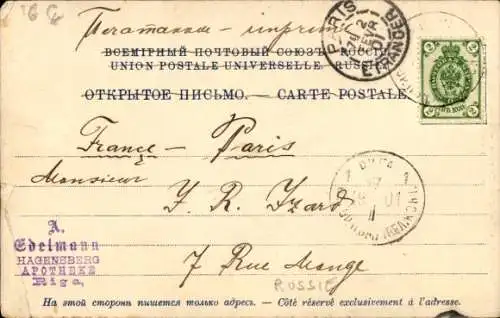 Печатанное - imprimé
ВСЕМІРНЫЙ ПОЧТОВЫЙ СОЮЗЪ. РОССІЯ.
UNION POSTALE UNIVERSELLE. RUSSIE.
ОТКРЫТОЕ ПИСЬМО. — CARTE POSTALE.
PARIS
ETRANGER
France — Paris
Monsieur
J. R. Izard
7 Rue Monge
RUSSIE
A.
Edelmann
HAGENSBERG
APOTHEKE
Riga.
РИГА
На этой сторонѣ пишется только адресъ. — Côté réservé exclusivement à l'adresse.